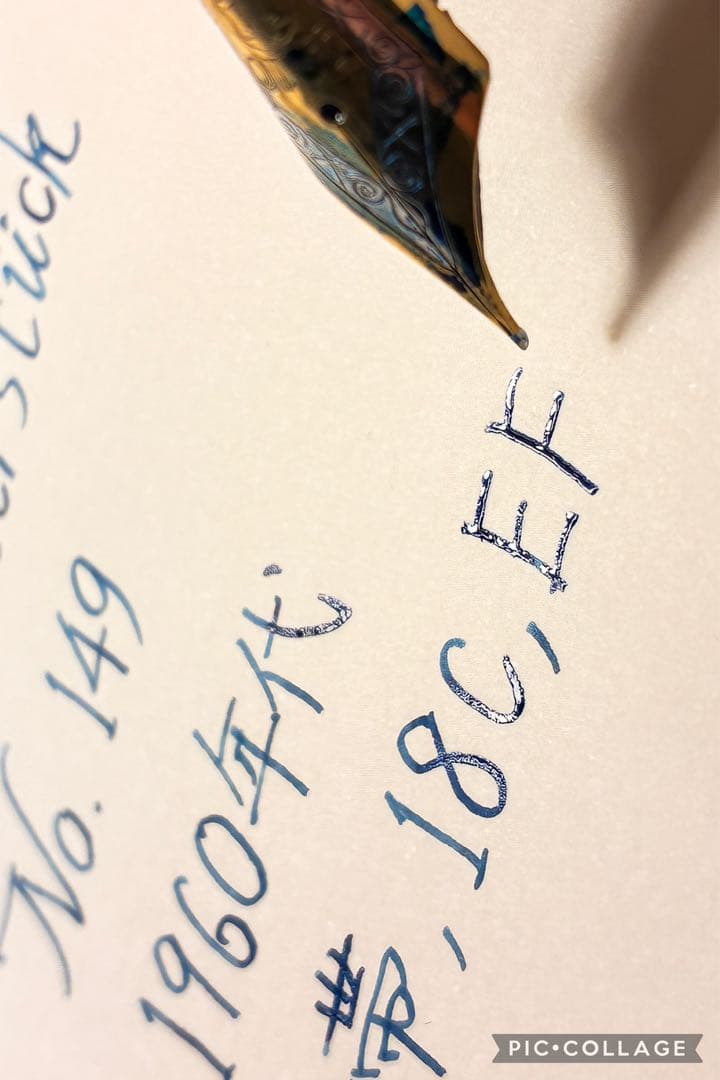 erstück
No. 149
1960年代
帯, 18C, EF
PIC•COLLAGE